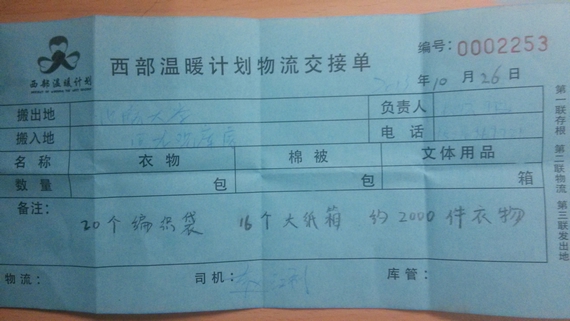 西部温暖计划
西部温暖计划物流交接单
编号: 0002253
年10月26日
搬出地 负责人
搬入地 电话
名称 衣物 棉被 文体用品
数量 包 包 箱
备注:
20个编织袋 16个大纸箱 约2000件衣物
物流: 司机: 库管:
第一联存根 第二联物流 第三联发出地